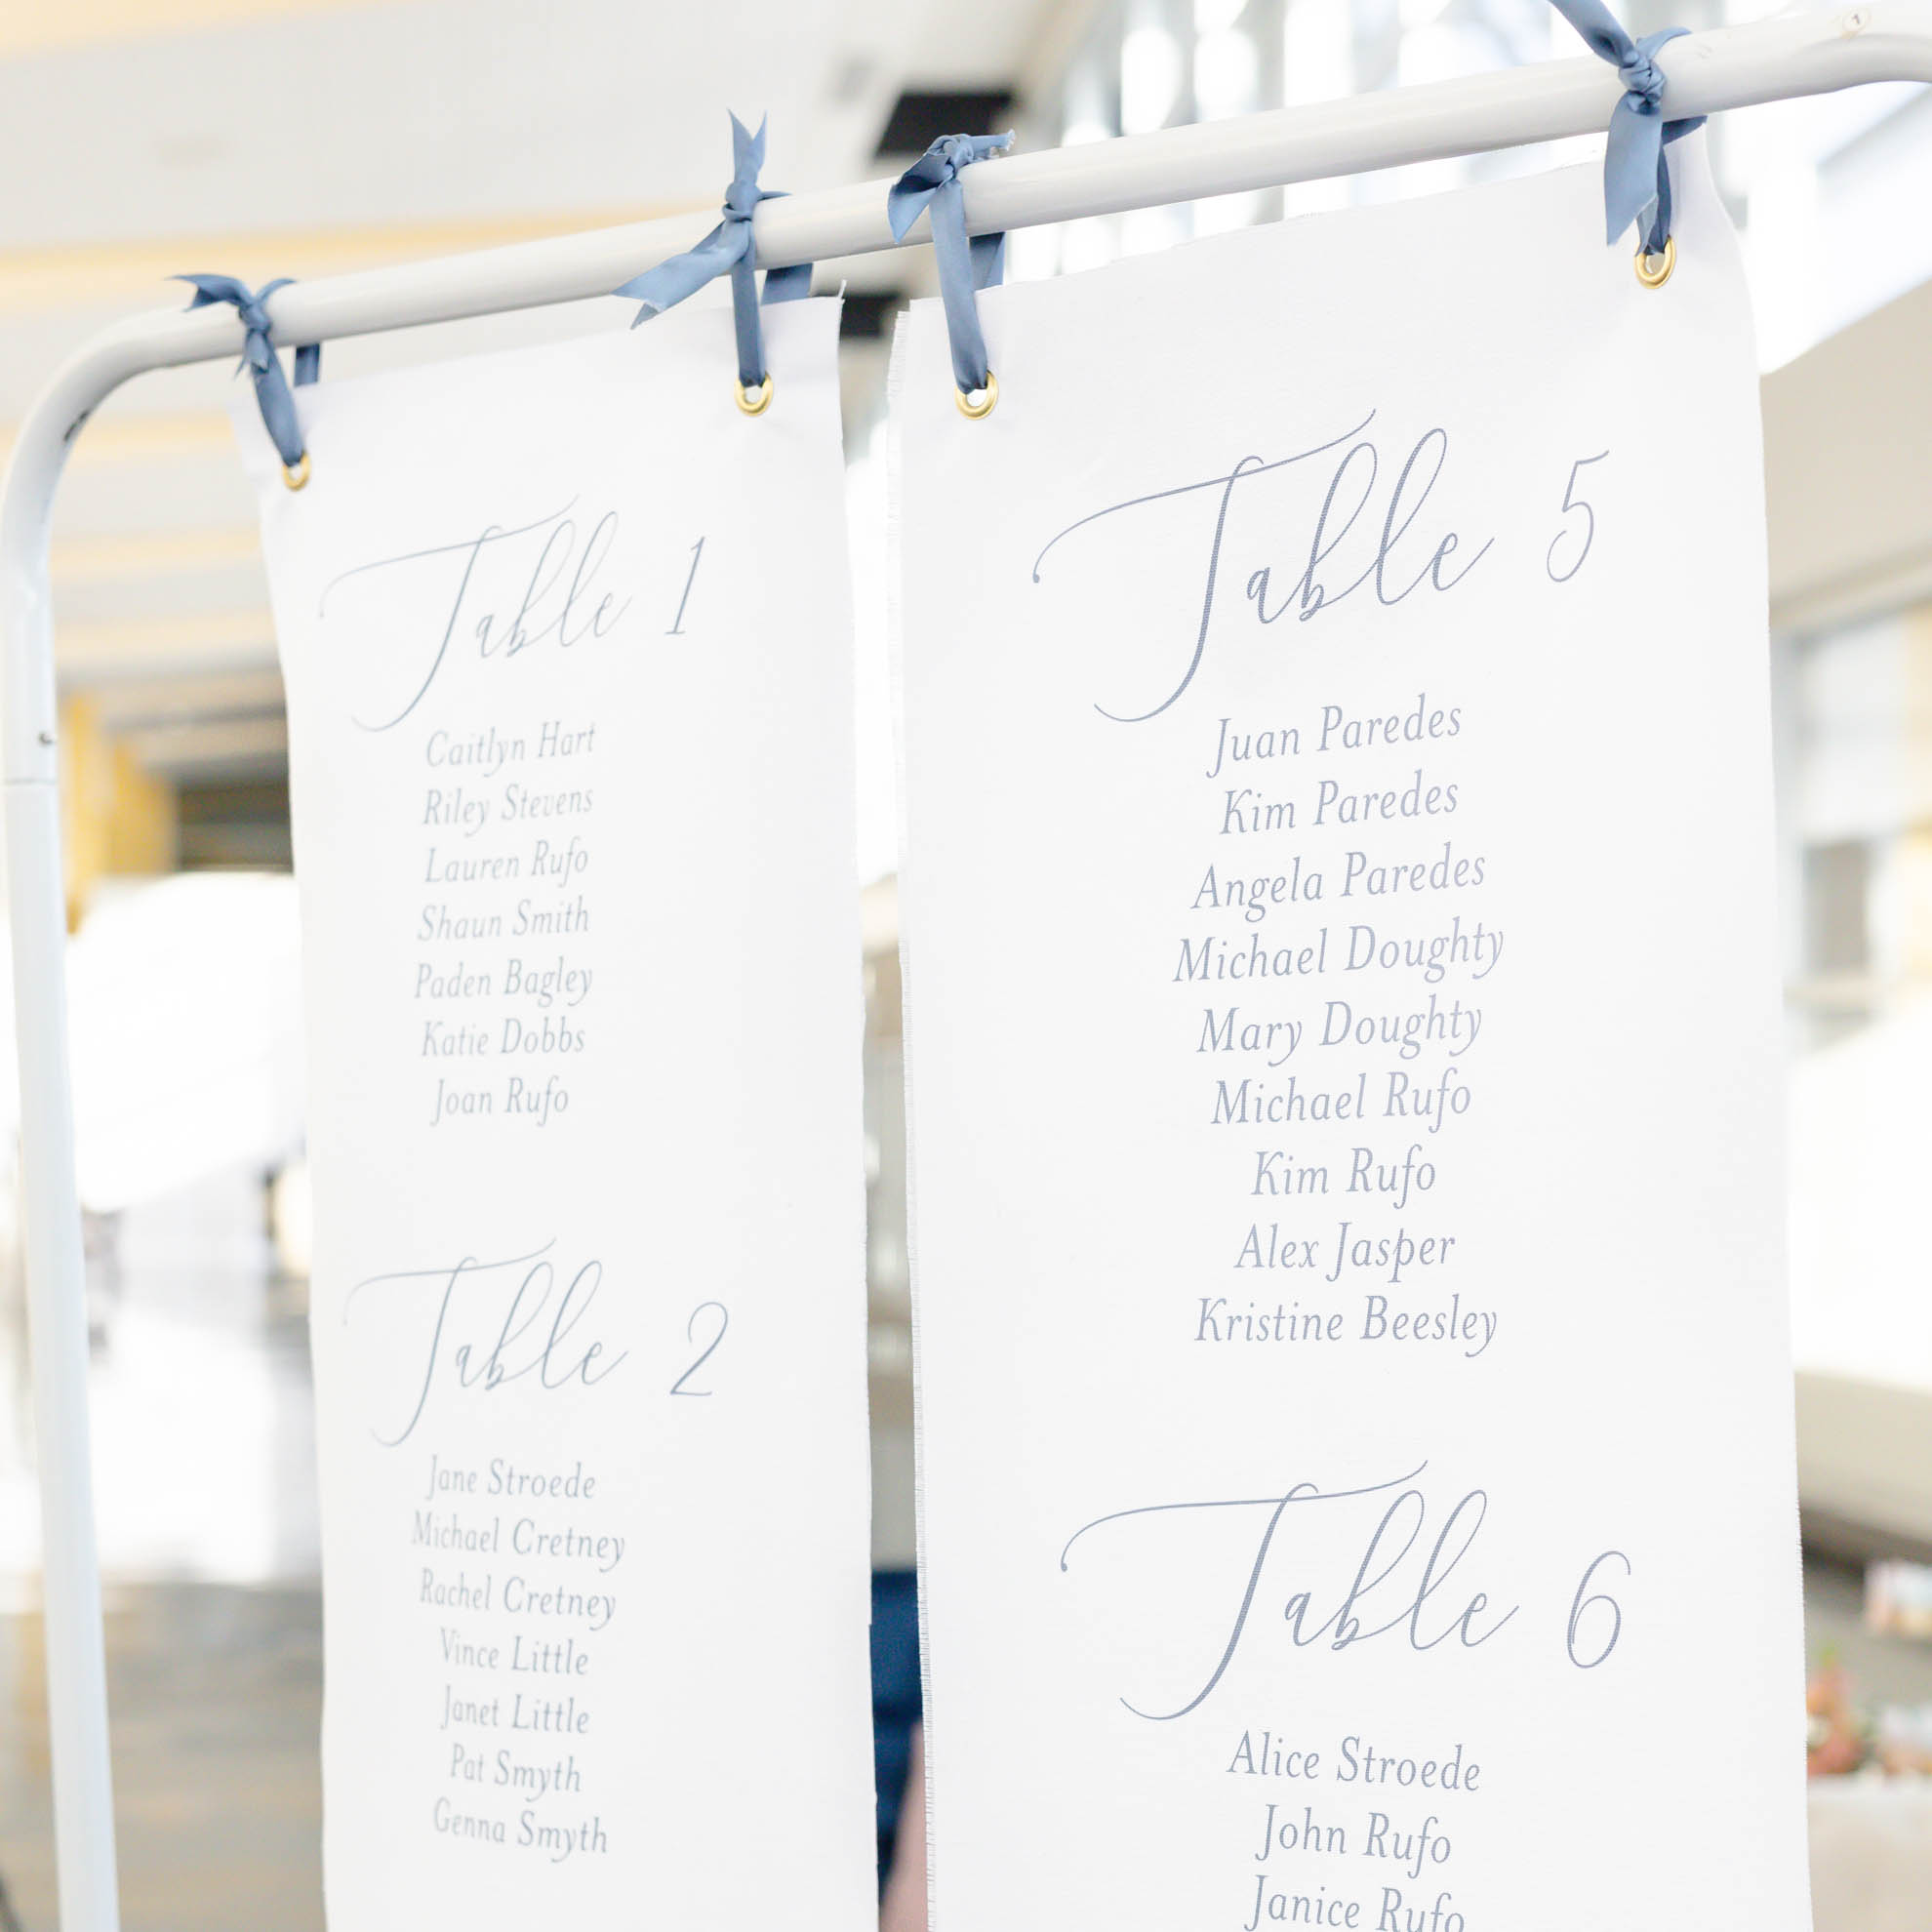 Table 1
Caitlyn Hart
Riley Stevens
Lauren Rufo
Shaun Smith
Paden Bagley
Katie Dobbs
Joan Rufo
Table 2
Jane Stroede
Michael Cretney
Rachel Cretney
Vince Little
Janet Little
Pat Smyth
Genna Smyth
Table 5
Juan Paredes
Kim Paredes
Angela Paredes
Michael Doughty
Mary Doughty
Michael Rufo
Kim Rufo
Alex Jasper
Kristine Beesley
Table 6
Alice Stroede
John Rufo
Janice Rufo